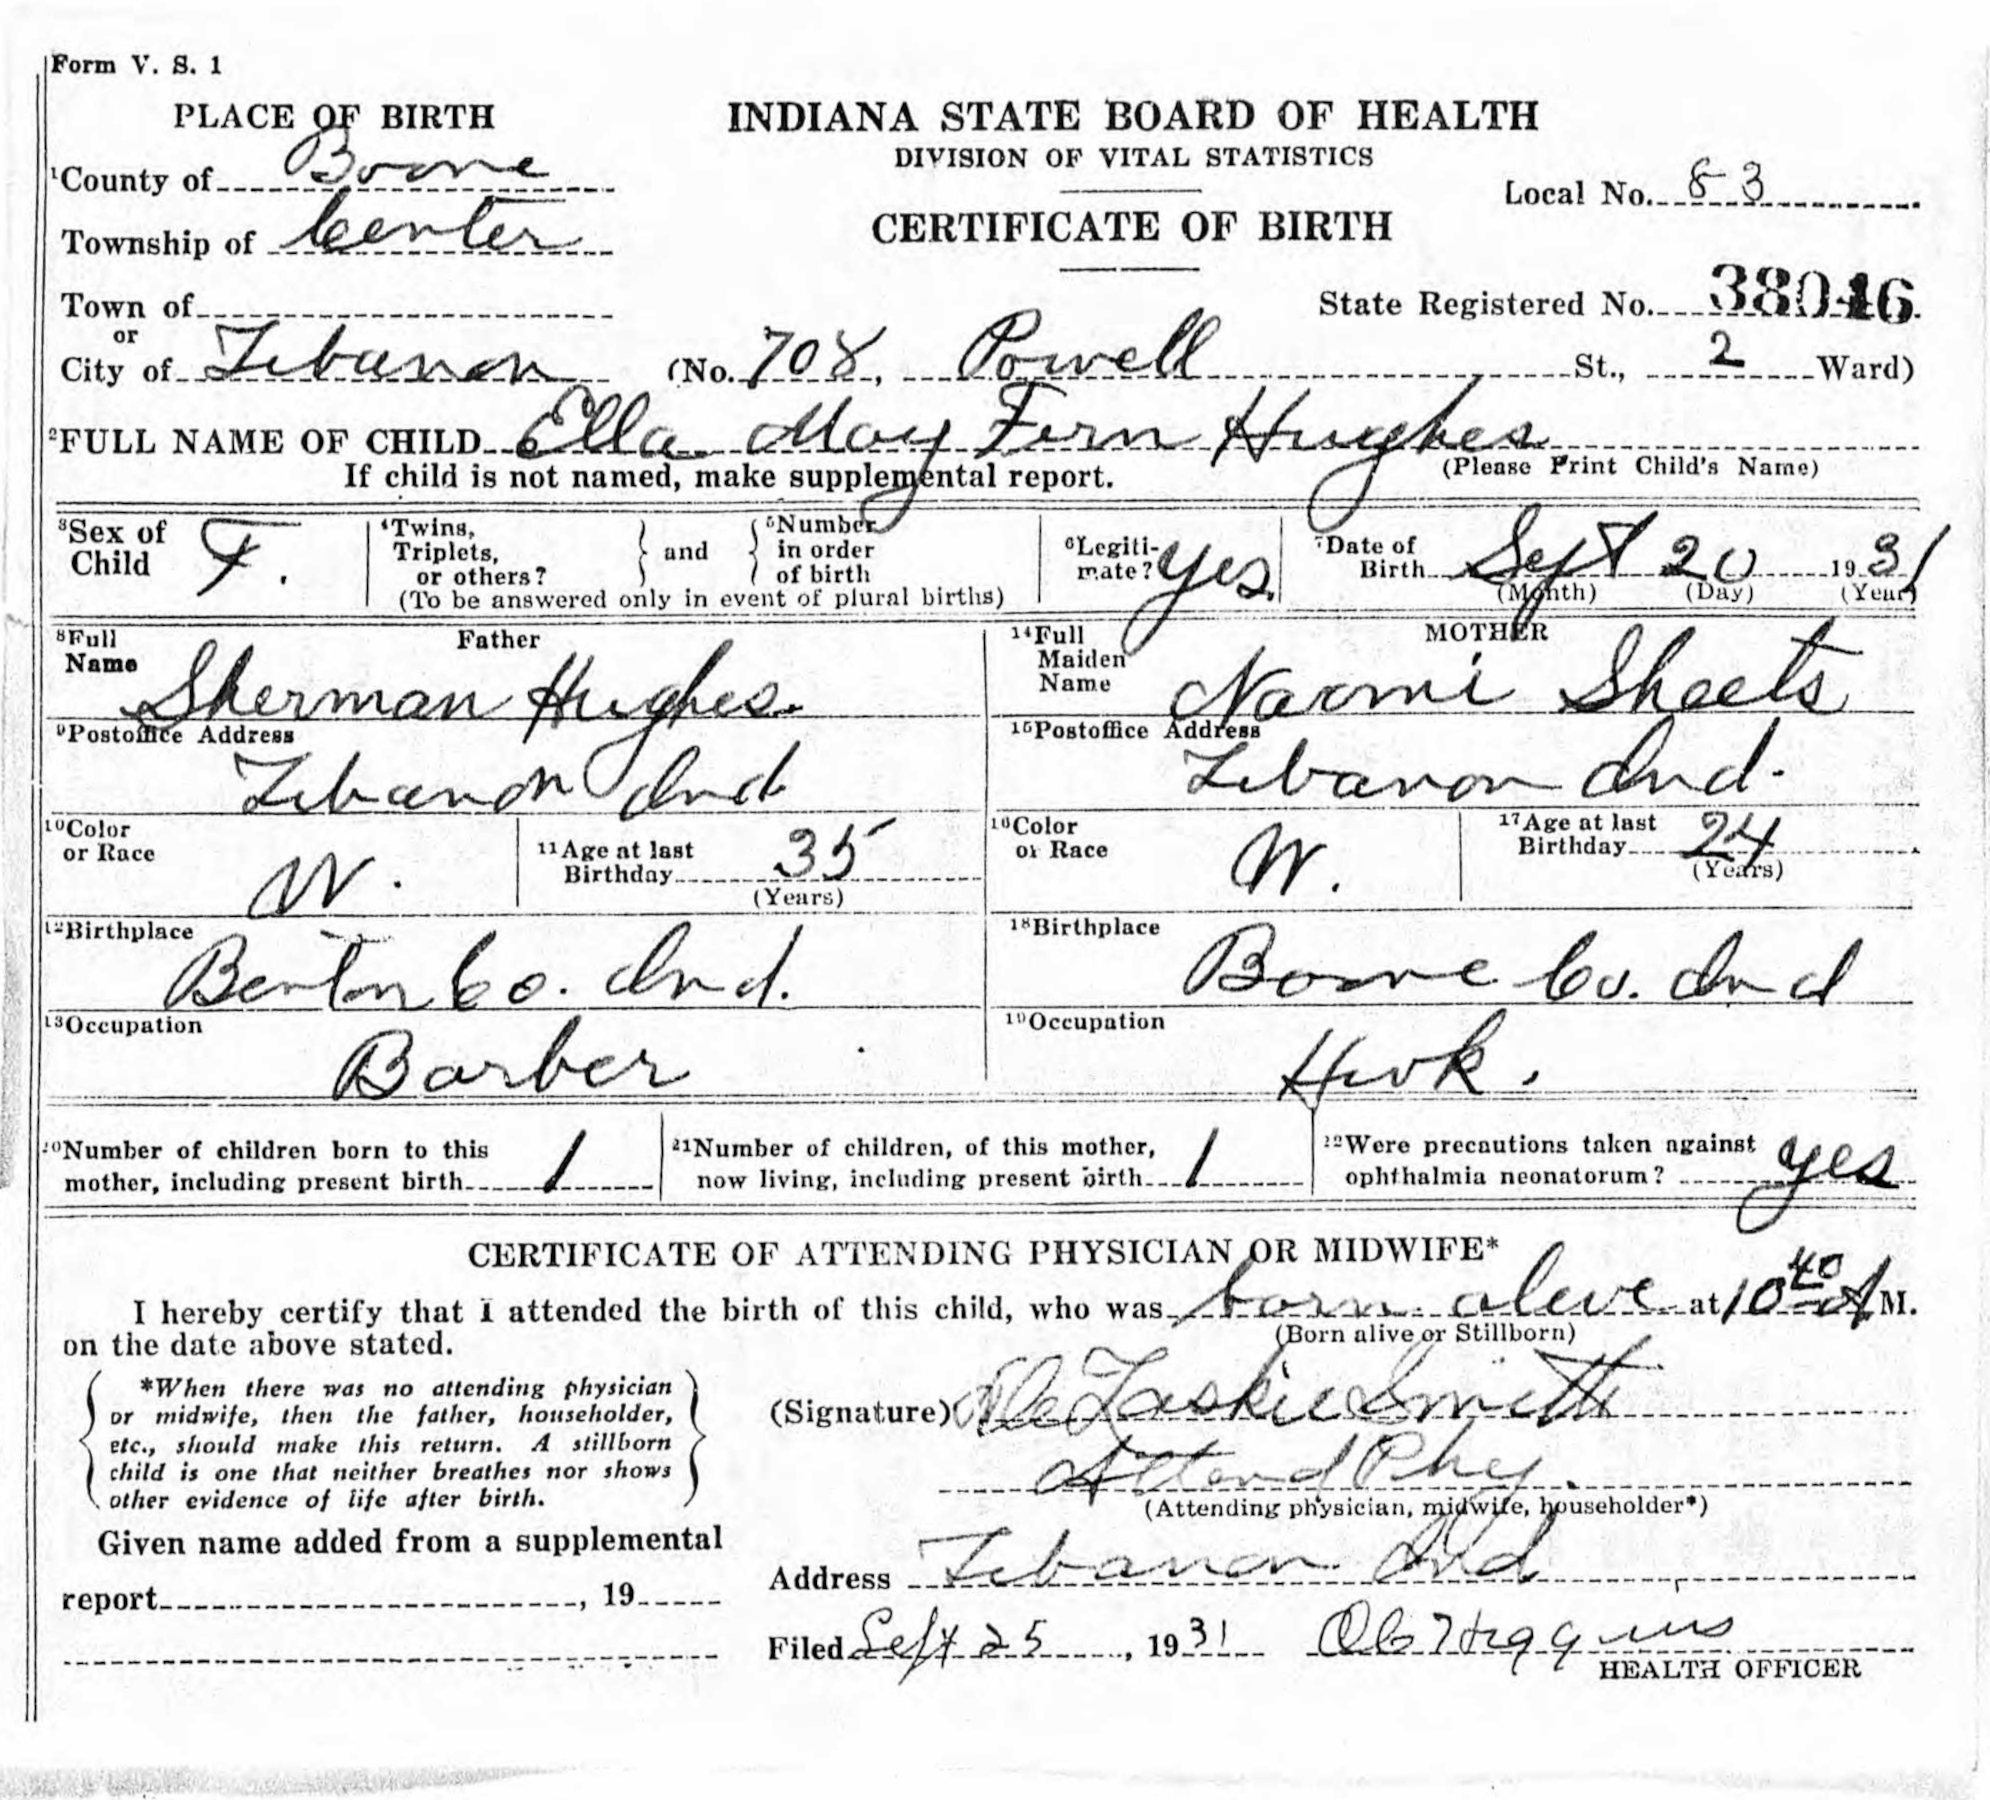 Form V. S. 1
PLACE OF BIRTH
INDIANA STATE BOARD OF HEALTH
DIVISION OF VITAL STATISTICS
1County of Boone
Local No. 83
Township of Center
CERTIFICATE OF BIRTH
Town of
State Registered No.
or
City of Lebanon (No. 708, Powell St., 2 Ward)
2FULL NAME OF CHILD Ella May Fern Hughes
If child is not named, make supplemental report.
(Please Print Child's Name)
3Sex of Child F.
4Twins, Triplets, or others? } and { 5Number in order of birth
(To be answered only in event of plural births)
6Legitimate? yes.
7Date of Birth Sept 20 1931
(Month) (Day) (Year)
8Full Name Father
Sherman Hughes.
14Full Maiden Name MOTHER
Naomi Sheets
9Postoffice Address
Lebanon Ind.
15Postoffice Address
Lebanon Ind.
10Color or Race W.
11Age at last Birthday 35
(Years)
16Color or Race W.
17Age at last Birthday 24
(Years)
12Birthplace
Benton Co. Ind.
18Birthplace
Boone Co. Ind
13Occupation
Barber
19Occupation
Hwk.
20Number of children born to this mother, including present birth 1
21Number of children, of this mother, now living, including present birth 1
22Were precautions taken against ophthalmia neonatorum? yes
CERTIFICATE OF ATTENDING PHYSICIAN OR MIDWIFE*
I hereby certify that I attended the birth of this child, who was born alive at 10 40 A M.
(Born alive or Stillborn)
on the date above stated.
*When there was no attending physician
or midwife, then the father, householder,
etc., should make this return. A stillborn
child is one that neither breathes nor shows
other evidence of life after birth.
(Signature) Laskie Smith
Attend Phy.
(Attending physician, midwife, householder*)
Given name added from a supplemental
report , 19
Address Lebanon Ind
Filed Sept 25, 1931
HEALTH OFFICER